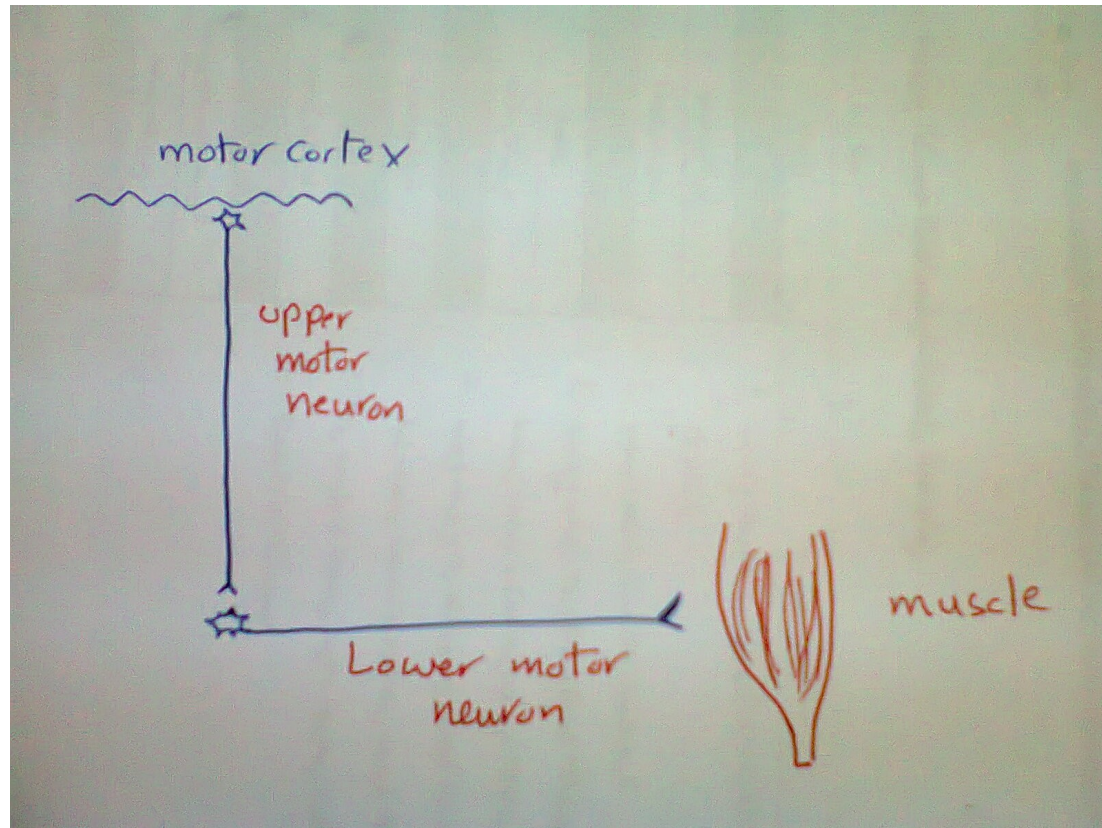 motor cortex
upper
motor
neuron
Lower motor
neuron
muscle